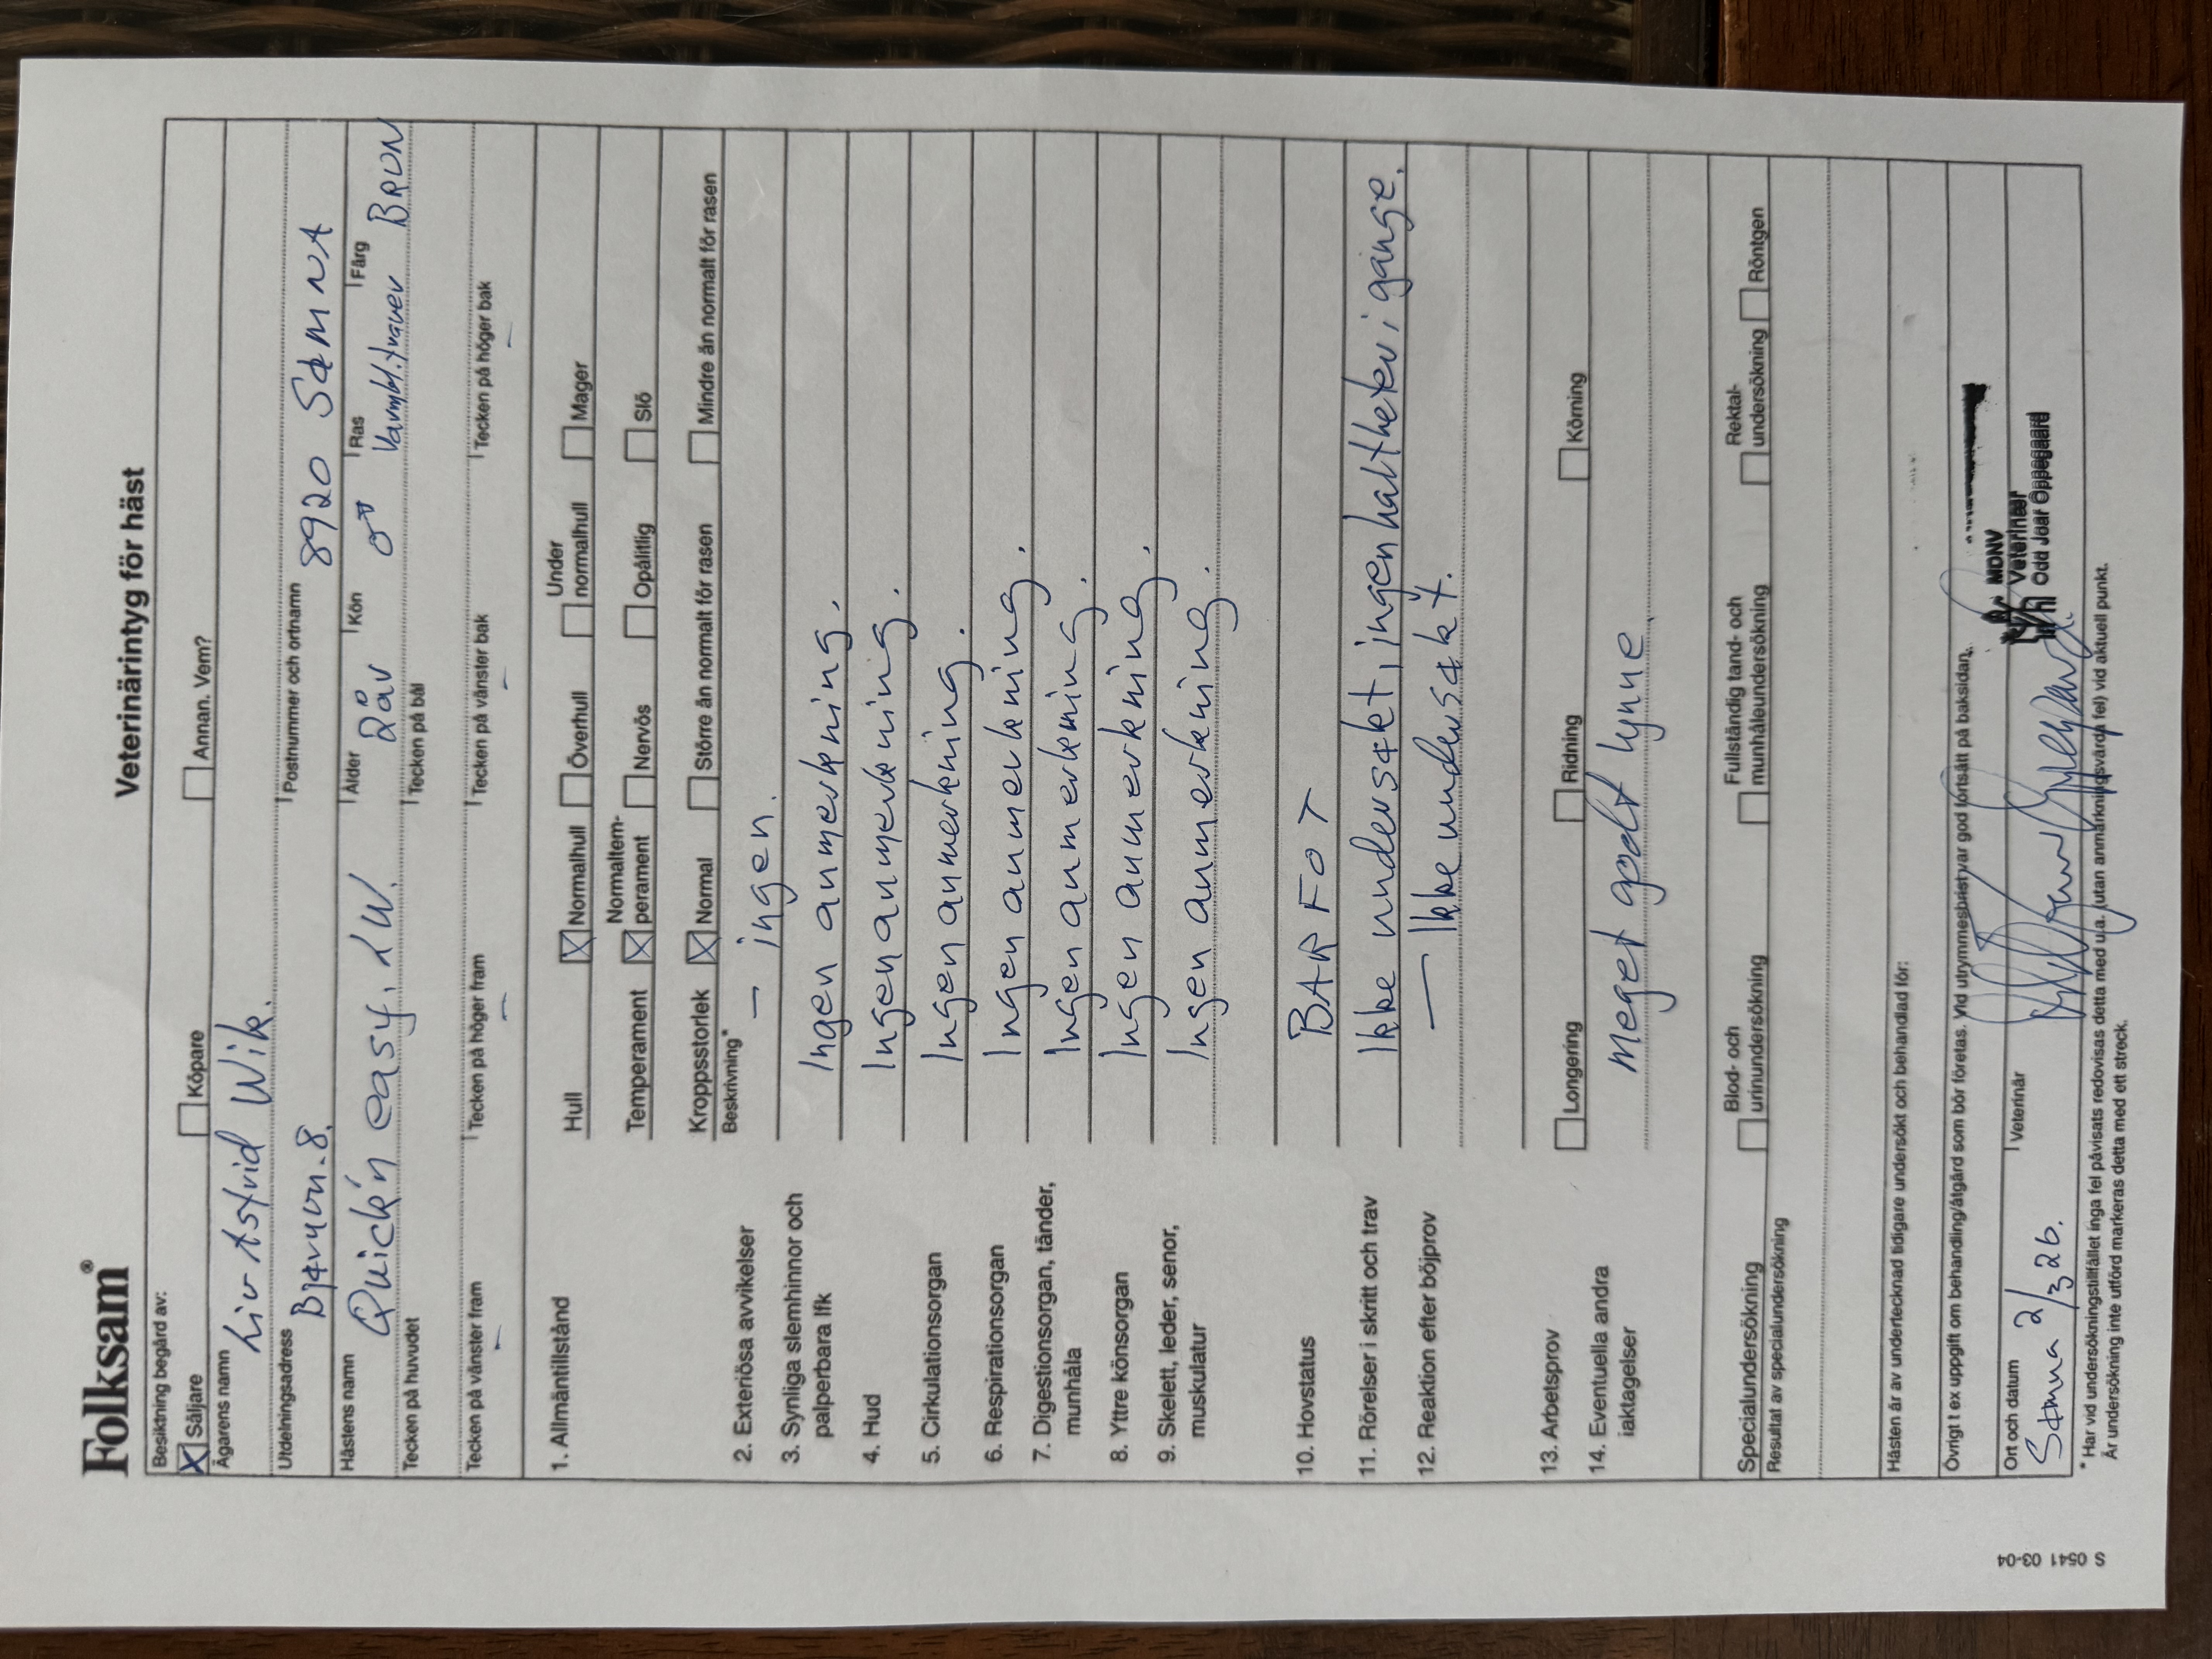 Folksam®
Veterinärintyg för häst
Besiktning begärd av:
X Säljare Köpare Annan. Vem?
Ägarens namn
Liv Astrid Wik.
Utdelningsadress Postnummer och ortnamn
Bjørun-8. 8920 SØMNA
Hästens namn Ålder Kön Ras Färg
Quick'n easy. LW. 2år ♂ Varmbl.traver BRUN
Tecken på huvudet Tecken på bål
Tecken på vänster fram Tecken på höger fram Tecken på vänster bak Tecken på höger bak
– – – –
1. Allmäntillstånd Hull X Normalhull Överhull Under normalhull Mager
Temperament X Normaltem-perament Nervös Opålitlig Slö
Kroppsstorlek X Normal Större än normalt för rasen Mindre än normalt för rasen
Beskrivning*
2. Exteriösa avvikelser – ingen.
3. Synliga slemhinnor och palperbara lfk Ingen anmerkning.
4. Hud Ingen anmerkning.
5. Cirkulationsorgan Ingen anmerkning.
6. Respirationsorgan Ingen anmerkning.
7. Digestionsorgan, tänder, munhåla Ingen anmerkning.
8. Yttre könsorgan Ingen anmerkning.
9. Skelett, leder, senor, muskulatur Ingen anmerkning.
10. Hovstatus BARFOT
11. Rörelser i skritt och trav Ikke undersøkt, ingen haltheter i gange.
12. Reaktion efter böjprov — Ikke undersøkt.
13. Arbetsprov Longering Ridning Körning
14. Eventuella andra iakttagelser meget godt lynne.
Specialundersökning Blod- och urinundersökning Fullständig tand- och munhåleundersökning Rektal-undersökning Röntgen
Resultat av specialundersökning
Hästen är av undertecknad tidigare undersökt och behandlad för:
Övrigt t ex uppgift om behandling/åtgärd som bör företas. Vid utrymmesbrist var god fortsätt på baksidan.
Ort och datum Veterinär
Sømna 2/3 26.
MDNV
Veterinær
Odd Joar Oppegaard
* Har vid undersökningstillfället inga fel påvisats redovisas detta med u.a. (utan anmärkningsvärda fel) vid aktuell punkt.
Är undersökning inte utförd markeras detta med ett streck.
S 0541 03-04